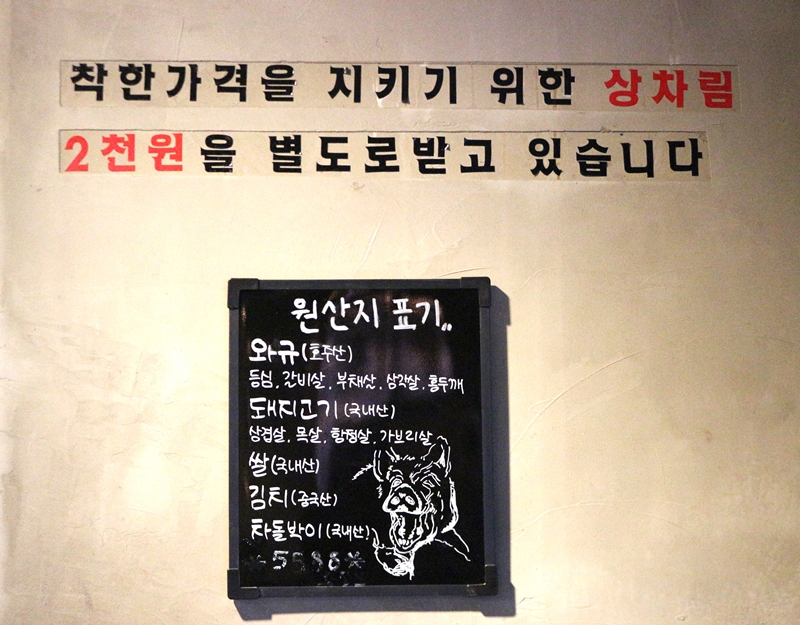 착한가격을 지키기 위한 상차림
2천원을 별도로받고 있습니다
원산지 표기..
와규(호주산)
등심, 갈비살, 부채살, 삼각살, 홍두깨
돼지고기(국내산)
삼겹살, 목살, 항정살, 가브리살
쌀(국내산)
김치(중국산)
차돌박이(국내산)